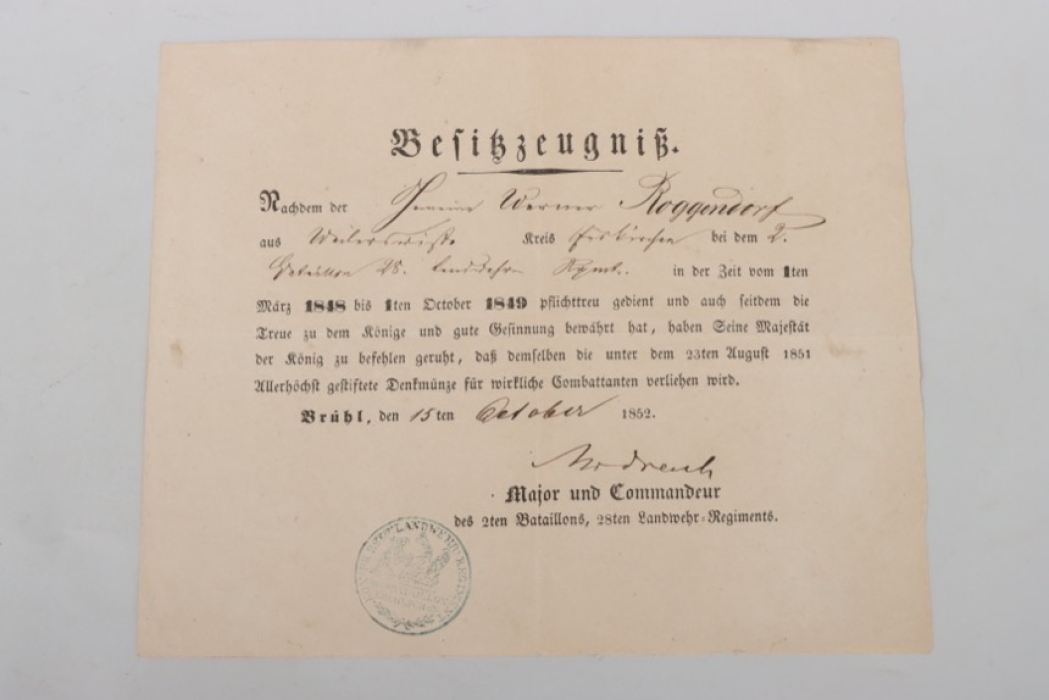 Besitzzeugniß.
Nachdem der Gemeine Werner Roggendorf
aus Weilerswist Kreis Euskirchen bei dem 2.
Bataillon 28. Landwehr Rgmt. in der Zeit vom 1ten
März 1848 bis 1ten October 1849 pflichttreu gedient und auch seitdem die
Treue zu dem Könige und gute Gesinnung bewährt hat, haben Seine Majestät
der König zu befehlen geruht, daß demselben die unter dem 23ten August 1851
Allerhöchst gestiftete Denkmünze für wirkliche Combattanten verliehen wird.
Brühl, den 15ten October 1852.
Major und Commandeur
des 2ten Bataillons, 28ten Landwehr-Regiments.
LANDWEHR REGIMENT